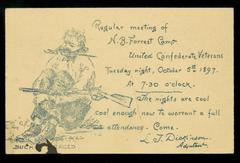 Regular meeting of
N.B. Forrest Camp
United Confederate Veterans
Tuesday night, October 5th 1897.
At 7-30 o'clock.
The nights are cool
cool enough now to warrant a full
attendance - Come.
L. T. Dickinson
Adjutant